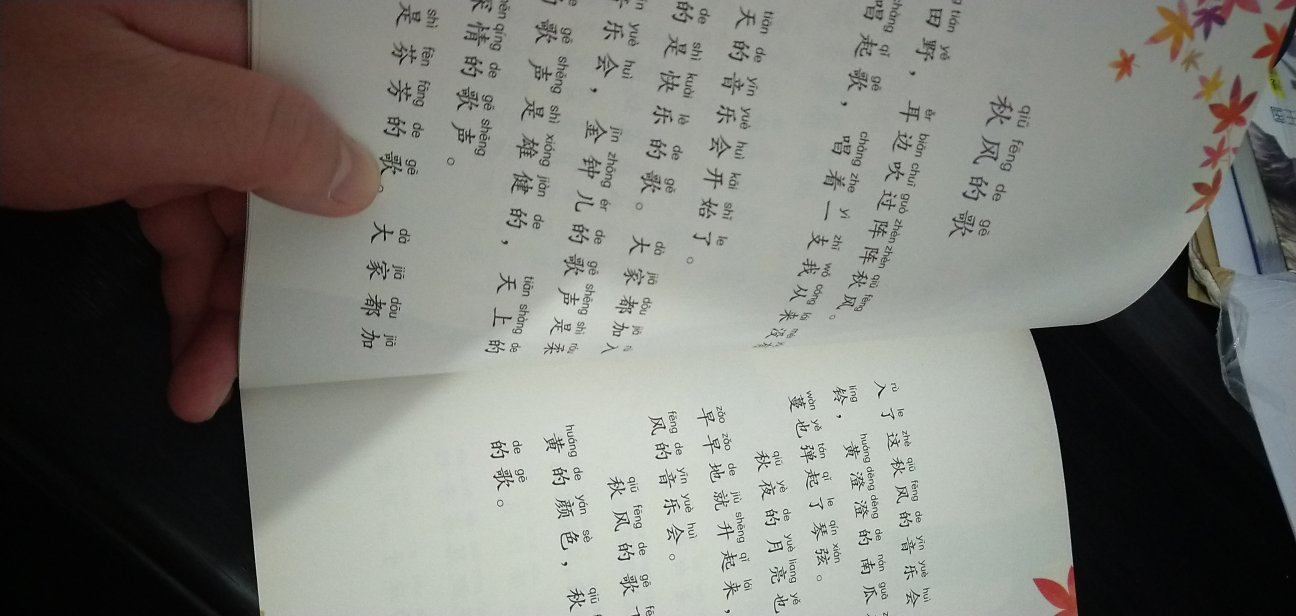 qiū fēng de gē
秋风的歌
tián yě ěr biān chuī guò zhèn zhèn qiū fēng
田野，耳边吹过阵阵秋风。
chàng qǐ gē chàng zhe yì zhī wǒ cóng lái
唱起歌，唱着一支我从来没
tiān de yīn yuè huì kāi shǐ le
天的音乐会开始了。
de shì kuài lè de gē dà jiā dōu jiā
的是快乐的歌。大家都加入
yuè huì jīn zhōng ér de gē shēng shì róu
乐会，金钟儿的歌声是柔
gē shēng shì xióng jiàn de tiān shàng de
歌声是雄健的，天上的
qíng de gē shēng
深情的歌声。
shì fēn fāng de gē dà jiā dōu jiā
是芬芳的歌。大家都加
rù le zhè qiū fēng de yīn yuè huì
入了这秋风的音乐会
líng huáng dēng dēng de nán guā
铃，黄澄澄的南瓜
wàn yě tán qǐ le qín xián
蔓也弹起了琴弦。
qiū yè de yuè liang yě
秋夜的月亮也
zǎo zǎo de jiù shēng qǐ lái
早早地就升起来，
fēng de yīn yuè huì
风的音乐会。
qiū fēng de gē
秋风的歌
huáng de yán sè qiū
黄的颜色，秋
de gē
的歌。